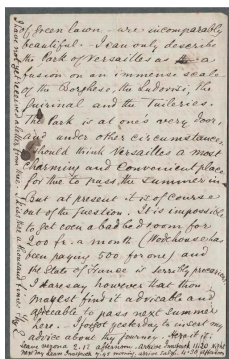 of green lawn, are incomparably
beautiful. I can only describe
the Park of Versailles as a
fusion on an immense scale
of the Borghese, the Ludovisi, the
Quirinal and the Tuileries.
The Park is at one's very door,
and under other circumstances
I should think Versailles a most
charming and convenient place
for thee to pass the summer in
But at present it is of course
out of the question. It is impossible
to get even a bad bedroom for
200 fr. a month (Wodehouse has
been paying 500 for one) and
the State of France is terribly precarious
I daresay however that thou
mayest find it advisable and
agreeable to pass next summer
here. I forgot yesterday to insert my
advice about thy journey. Here it is.
Leave 5.15 afternoon arrive Innspruck 11.30 night
Next day leave Innspruck 7.45 morning, arrive 4.30 afternoon
I have not yet received a letter from thee. I kiss thee a thousand times and